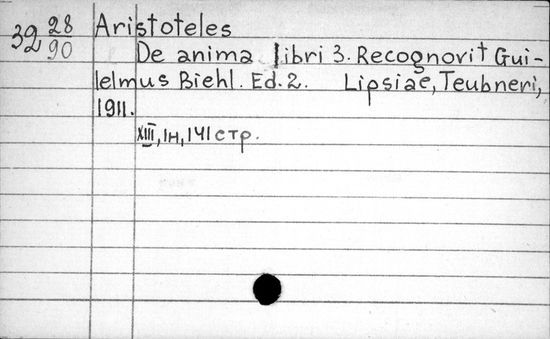 Aristoteles
32 28/90
De anima libri 3. Recognovit Gui-
lelmus Biehl. Ed. 2. Lipsiae, Teubneri,
1911.
XIII, 1н, 141 стр.